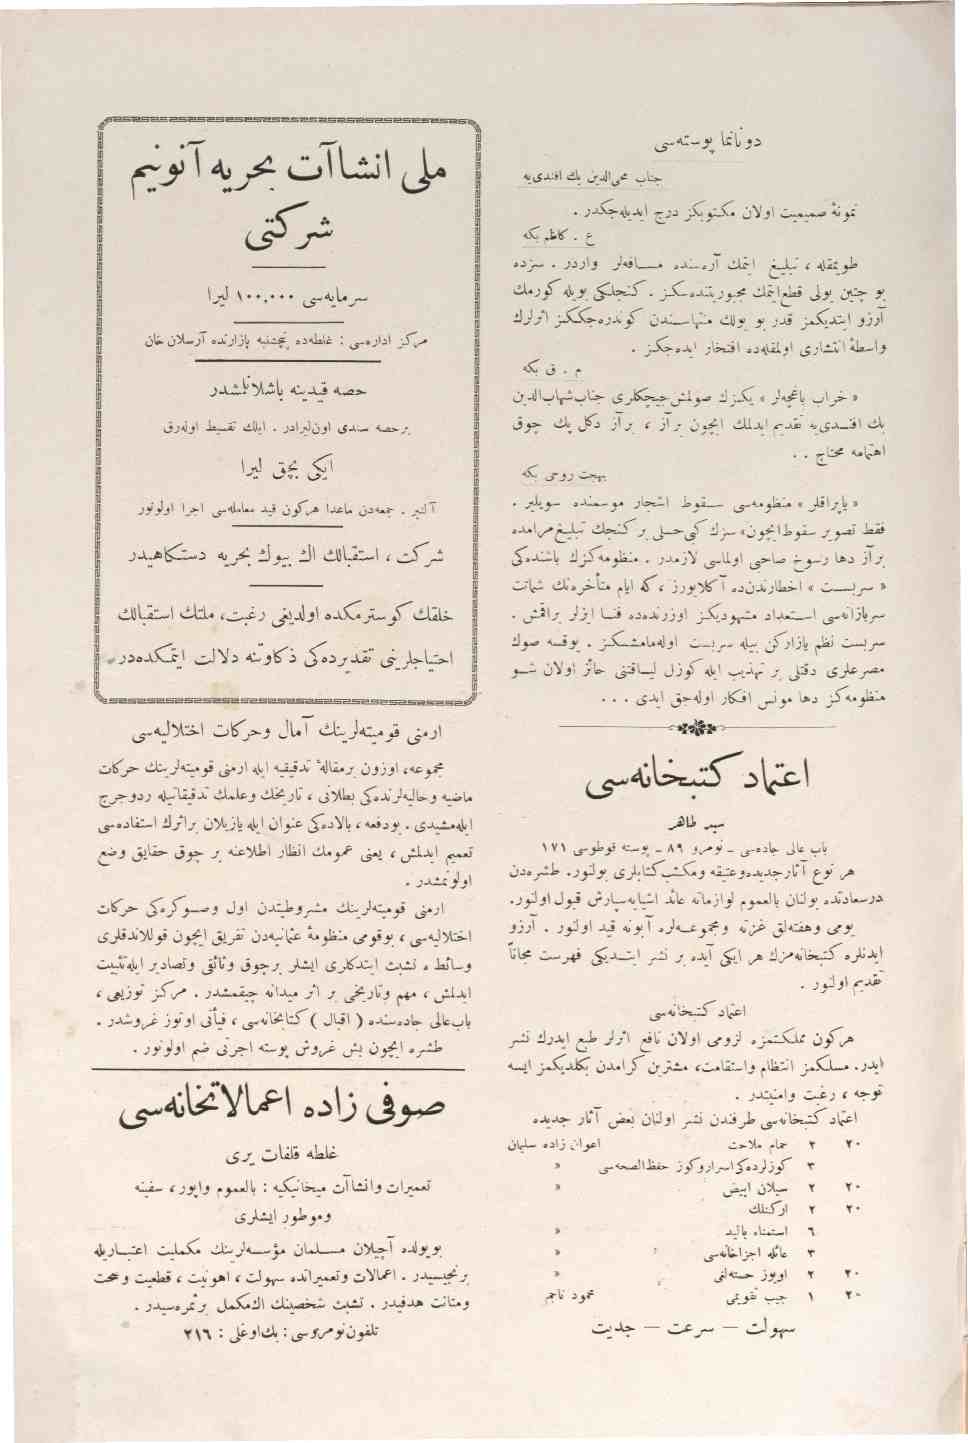 دوناتما پوسته‌سی
جناب محی‌الدین بك افندی‌یه
نمونهٔ صمیمیت اولان مکتوبکز درج ایدیله‌جکدر .
ع . کاظم بکه
طویمقله ، تبلیغ ایتمك آره‌سنده مسافه‌لر واردر . سزده
بو چتین یولی قطع ایتمك مجبوریتنده‌سکز . کنجلکی بویله کورمك
آرزو ایتدیکمز قدر بو یولك منتهاسندن کوندره‌جککز اثرلرك
واسطهٔ انتشاری اولمقله‌ده افتخار ایده‌جکز .
م . ق بکه
« خراب باغچه‌لر » یکزك صولمش چیچکلری جناب شهاب‌الدین
بك افندی‌یه تقدیم ایدلمك ایچون بر آز ، بر آز دکل پك چوق
اهتمامه محتاج . .
بهجت روحی بکه
« یاپراقلر » منظومه‌سی سقوط اشجار موسمنده سویلیر .
فقط تصویر سقوط ایچون سزك کبی حسلی بر کنجك تبلیغ مرامده
بر آز دها رسوخ صاحبی اولماسی لازمدر . منظومه‌کزك باشنده‌کی
« سربست » اخطارندن‌ده آکلایورز ، که ایام متأخره‌نك شماتت
سربازانه‌سی استعداد مشهودیکز اوزرنده‌ده فنا ایزلر براقمش .
سربست نظم یازارکن بیله سربست اوله‌مامشسکز . یوقسه صوك
مصرعلری دقتلی بر تهذیب ایله کوزل لیاقتنی حائز اولان شو
منظومه‌کز دها مونس افکار اوله‌جق ایدی . . .
اعتماد کتبخانه‌سی
سید طاهر
باب عالی جاده‌سی ـ نومرو ٨٩ ـ پوسته قوطوسی ١٧١
هر نوع آثار جدیده و عتیقه و مکتب کتابلری بولنور . طشره‌دن
درسعادتده بولنان بالعموم لوازماته عائد اشیایه سپارش قبول اولنور.
یومی و هفته‌لق غزته و مجموعه‌لره آبونه قید اولنور . آرزو
ایدنلره کتبخانه‌مزك هر ایکی آیده بر نشر ایتدیکی فهرست مجاناً
تقدیم اولنور .
اعتماد کتبخانه‌سی
هرکون مملکتمزه لزومی اولان نافع اثرلر طبع ایدرك نشر
ایدر. مسلکمز انتظام و استقامت، مشترین کرامدن بکلدیکمز ایسه
توجه ، رغبت و امنیتدر .
اعتماد کتبخانه‌سی طرفندن نشر اولنان بعض آثار جدیده
٢٠ ٢ حمام ملاحت اعوان زاده سلیمان
٣ کوزلرده‌کی اسرار و کوز حفظ‌الصحه‌سی «
٢٠ ٢ سیلان ابیض «
٢٠ ٢ ارکنلك
٦ استمناء بالید «
٣ عائله اجزاخانه‌سی «
٢٠ ٢ اویوز خسته‌لغی «
٢٠ ١ جیب تقویمی محمود ناجم
سهولت — سرعت — جدیت
ملی انشاآت بحریه آنونیم
شرکتی
سرمایه‌سی ١٠٠,٠٠٠ لیرا
مرکز اداره‌سی : غلطه‌ده پنچشنبه پازارنده آرسلان خان
حصه قیدینه باشلانلمشدر
بر حصه سندی اون لیرادر . ایلك تقسیط اوله‌رق
ایکی بچق لیرا
آلنیر . جمعه‌دن ماعدا هرکون قید معامله‌سی اجرا اولونور
شرکت ، استقبالك اك بیوك بحریه دستکاهیدر
خلقك کوسترمکده اولدیغی رغبت، ملتك استقبالك
احتیاجلرینی تقدیرده‌کی ذکاوتنه دلالت ایتمکده‌در
ارمنی قومیته‌لرینك آمال و حرکات اختلالیه‌سی
مجموعه، اوزون بر مقالهٔ تدقیقیه ایله ارمنی قومیته‌لرینك حرکات
ماضیه و حالیه‌لرنده‌کی بطلانی ، تاریخك و علمك تدقیقاتیله رد و جرح
ایله‌مشیدی . بودفعه ، بالاده‌کی عنوان ایله یازیلان بر اثرك استفاده‌سی
تعمیم ایدلمش ، یعنی عمومك انظار اطلاعنه بر چوق حقایق وضع
اولونمشدر .
ارمنی قومیته‌لرینك مشروطیتدن اول و صوکره‌کی حرکات
اختلالیه‌سی ، بوقومی منظومهٔ عثمانیه‌دن تفریق ایچون قوللاندقلری
وسائط ه تشبث ایتدکلری ایشلر برچوق وثائق و تصاویر ایله تثبیت
ایدلمش ، مهم و تاریخی بر اثر میدانه چیقمشدر . مرکز توزیعی ،
باب‌عالی جاده‌سنده ( اقبال ) کتابخانه‌سی ، فیأتی اوتوز غروشدر .
طشره ایچون بش غروش پوسته اجرتی ضم اولونور .
صوفی زاده اعمالاتخانه‌سی
غلطه قلفات یری
تعمیرات و انشاآت میخانیکیه : بالعموم واپور ، سفینه
و موطور ایشلری
بو یولده آچیلان مسلمان مؤسسه‌لرینك مکملیت اعتباریله
برنجیسیدر . اعمالات و تعمیراتده سهولت ، اهونیت ، قطعیت و صحت
و متانت هدفیدر . تشبث شخصینك اك مکمل برثمره‌سیدر .
تلفون نومروسی : بك‌اوغلی : ٢١٦